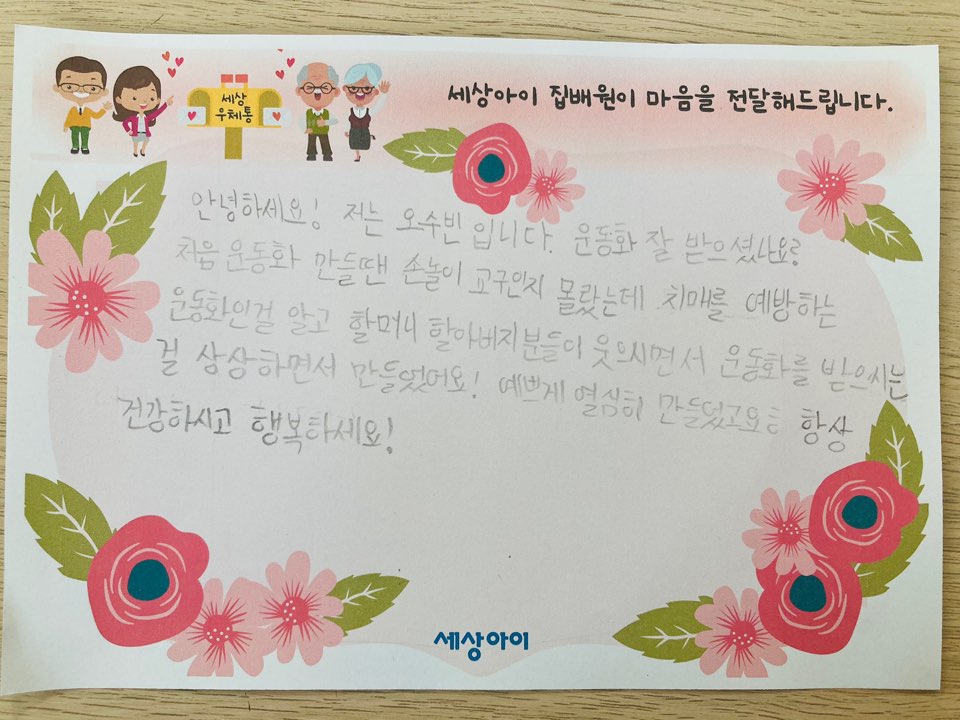 세상
우체통
세상아이 집배원이 마음을 전달해드립니다.
안녕하세요! 저는 오수빈입니다. 운동화 잘 받으셨나요?
처음 운동화 만들땐 손놀이 교구인지 몰랐는데 치매를 예방하는
운동화인걸 알고 할머니 할아버지분들이 웃으시면서 운동화를 받으시는
걸 상상하면서 만들었어요! 예쁘게 열심히 만들었고요 항상
건강하시고 행복하세요!
세상아이